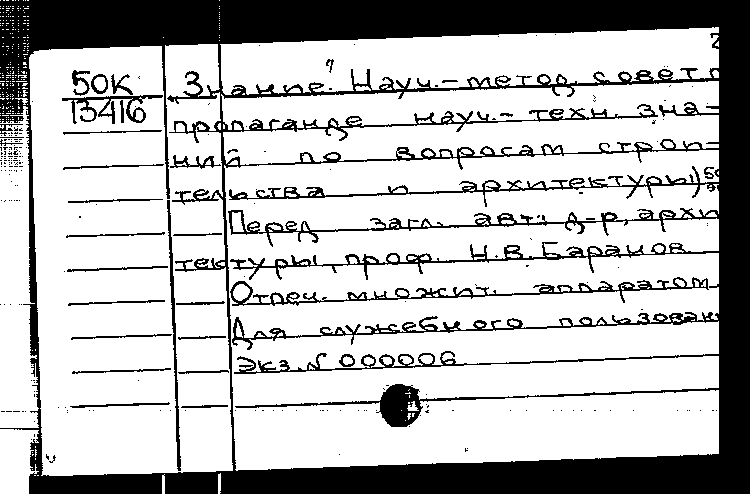 2
50К „Знание". Науч.-метод. совет п
13416 пропаганде науч.-техн. зна-
ний по вопросам строи-
тельства и архитектуры)
Перед загл. авт.: д-р, архи
тектуры, проф. Н.В. Баранов
Отпеч. множит. аппаратом
Для служебного пользован
Экз. № 000006